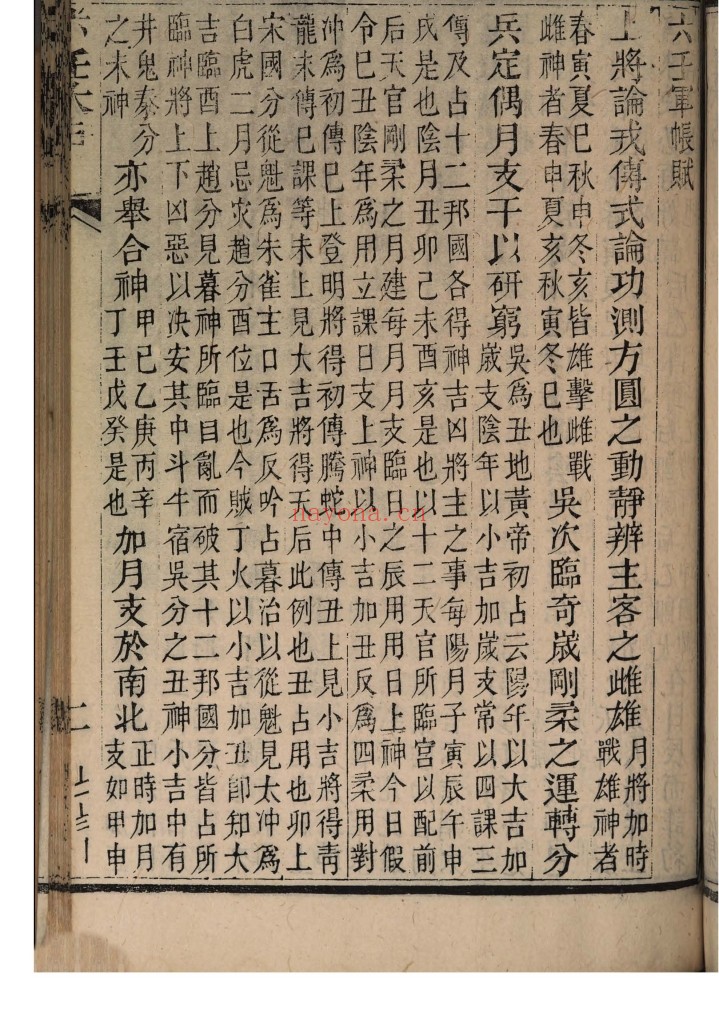 六壬軍帳賦
上將論戎傳式論功測方圓之動靜辨主客之雌雄月將加時戰雄神者
春寅夏巳秋申冬亥皆雄擊雌戰雌神者春申夏亥秋寅冬巳也吳次臨奇歲剛柔之運轉分
兵定偶月支干以研窮吳爲丑地黃帝初占云陽年以大吉加歲支陰年以小吉加歲支常以四課三
傳及占十二邦國各得神吉凶將主之事每陽月子寅辰午申
戌是也陰月丑卯己未酉亥是也以十二天官所臨宮以配前
后天官剛柔之月建每月月支臨日之辰用用日上神今日假
令巳丑陰年爲用立課日支上神以小吉加丑反爲四柔用對
沖爲初傳巳上登明將得初傳騰蛇中傳丑上見小吉將得青
龍末傳巳課等未上見大吉將得天后此例也丑占用也卯上
宋國分從魁爲朱雀主口舌爲反吟占暮治以從魁見太沖爲
白虎二月忌灾趙分酉位是也今賊丁火以小吉加丑卽知大
吉臨酉上趙分見暮神所臨目亂而破其十二邦國分皆占所
臨神將上下凶惡以决安其中斗牛宿吳分之丑神小吉中有
井鬼秦分之未神亦舉合神甲己乙庚丙辛丁壬戊癸是也加月支於南北正時加月支如甲申
六壬大全
二
nayona.cn